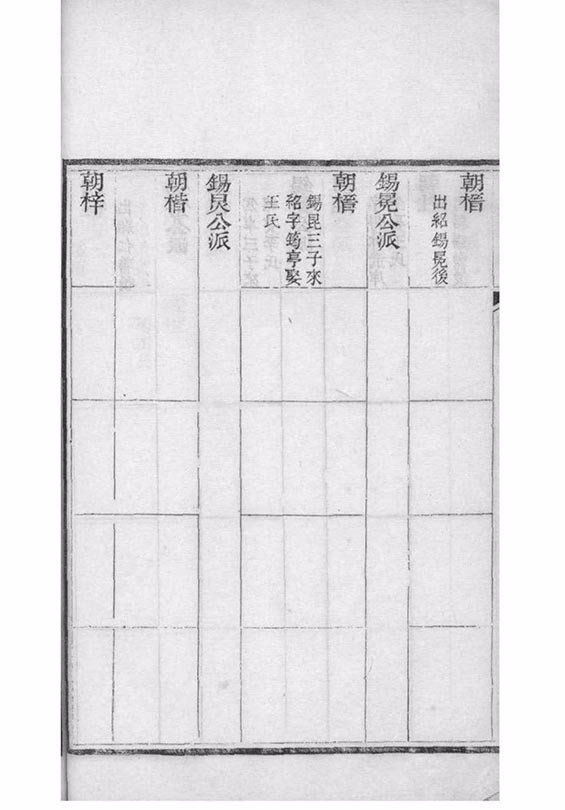 朝榗
出紹錫冕後
錫冕公派
朝榗
錫昆三子來
紹字筠亭娶
王氏
錫艮公派
朝楷
朝梓